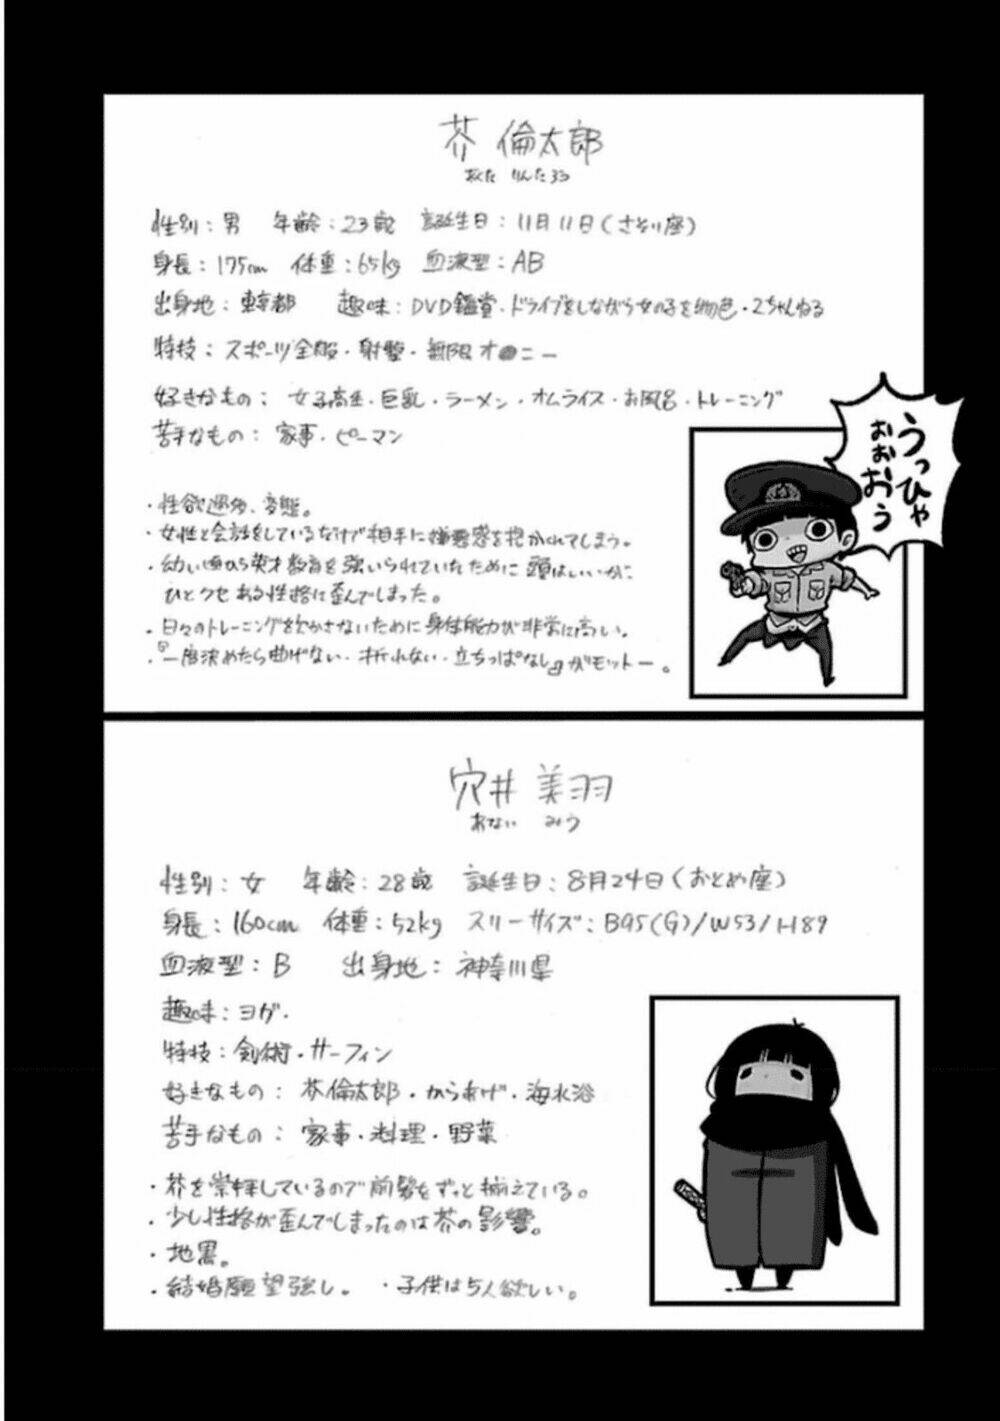 芥 倫太郎
あくた りんたろう
性別：男 年齢：23歳 誕生日：11月11日(さそり座)
身長：175cm 体重：65kg 血液型：AB
出身地：東京都 趣味：DVD鑑賞・ドライブをしながら女の子を物色・2ちゃんねる
特技：スポーツ全般・射撃・無限オ●ニー
好きなもの：女子高生・巨乳・ラーメン・オムライス・お風呂・トレーニング
苦手なもの：家事・ピーマン
うっひゃ
おおおう
・性欲過多、変態。
・女性と会話をしているだけで相手に嫌悪感を抱かれてしまう。
・幼い頃から英才教育を強いられていたために頭はいいが
ひとクセある性格に歪んでしまった。
・日々のトレーニングを欠かさないために身体能力が非常に高い。
・『一度決めたら曲げない・折れない・立ちっぱなし』がモットー。
穴井 美羽
あない みう
性別：女 年齢：28歳 誕生日：8月24日(おとめ座)
身長：160cm 体重：52kg スリーサイズ：B95(G)/W53/H89
血液型：B 出身地：神奈川県
趣味：ヨガ・
特技：剣術・サーフィン
好きなもの：芥倫太郎・からあげ・海水浴
苦手なもの：家事・料理・野菜
・芥を崇拝しているので前髪をずっと揃えている。
・少し性格が歪んでしまったのは芥の影響。
・地黒。
・結婚願望強し。 ・子供は5人欲しい。